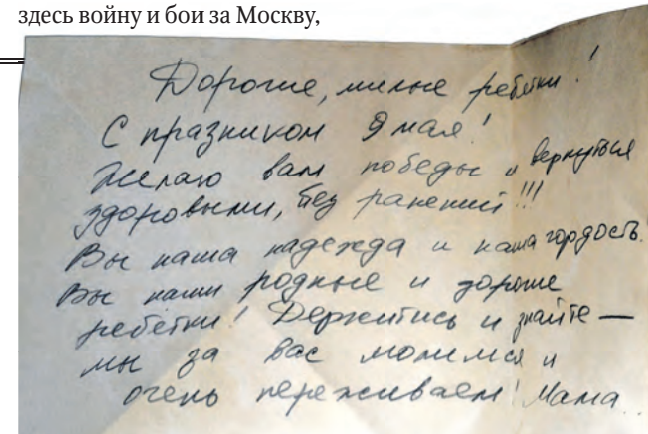 здесь войну и бои за Москву,
Дорогие, милые ребятки!
С празником 9 мая!
Желаю вам победы и вернуться
здоровыми, без ранений!!!
Вы наша надежда и наша гордость!
Вы наши родные и дорогие
ребётки! Держитись и знайте —
мы за вас молимся и
очень переживаем! Мама